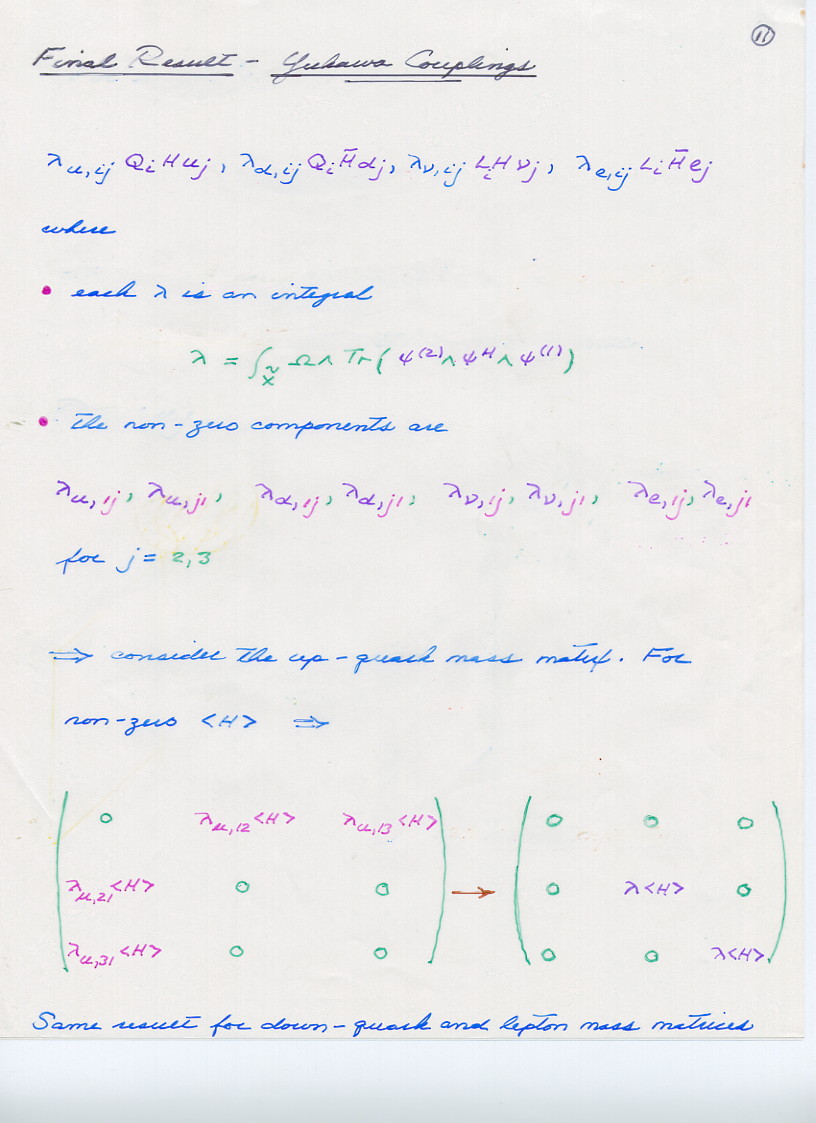 11
Final Result - Yukawa Couplings
λu,ij QiHuj, λd,ij QiH̄dj, λν,ij LiHνj, λe,ij LiH̄ej
where
• each λ is an integral
λ = ∫X̃ Ω∧Tr(ψ(2)∧ψH∧ψ(1))
• the non-zero components are
λu,1j, λu,j1, λd,1j, λd,j1, λν,1j, λν,j1, λe,1j, λe,j1
for j = 2,3
⇒ consider the up-quark mass matrix. For
non-zero <H> ⇒
0 λu,12<H> λu,13<H> 0 0 0
λu,21<H> 0 0 → 0 λ<H> 0
λu,31<H> 0 0 0 0 λ<H>
Same result for down-quark and lepton mass matrices